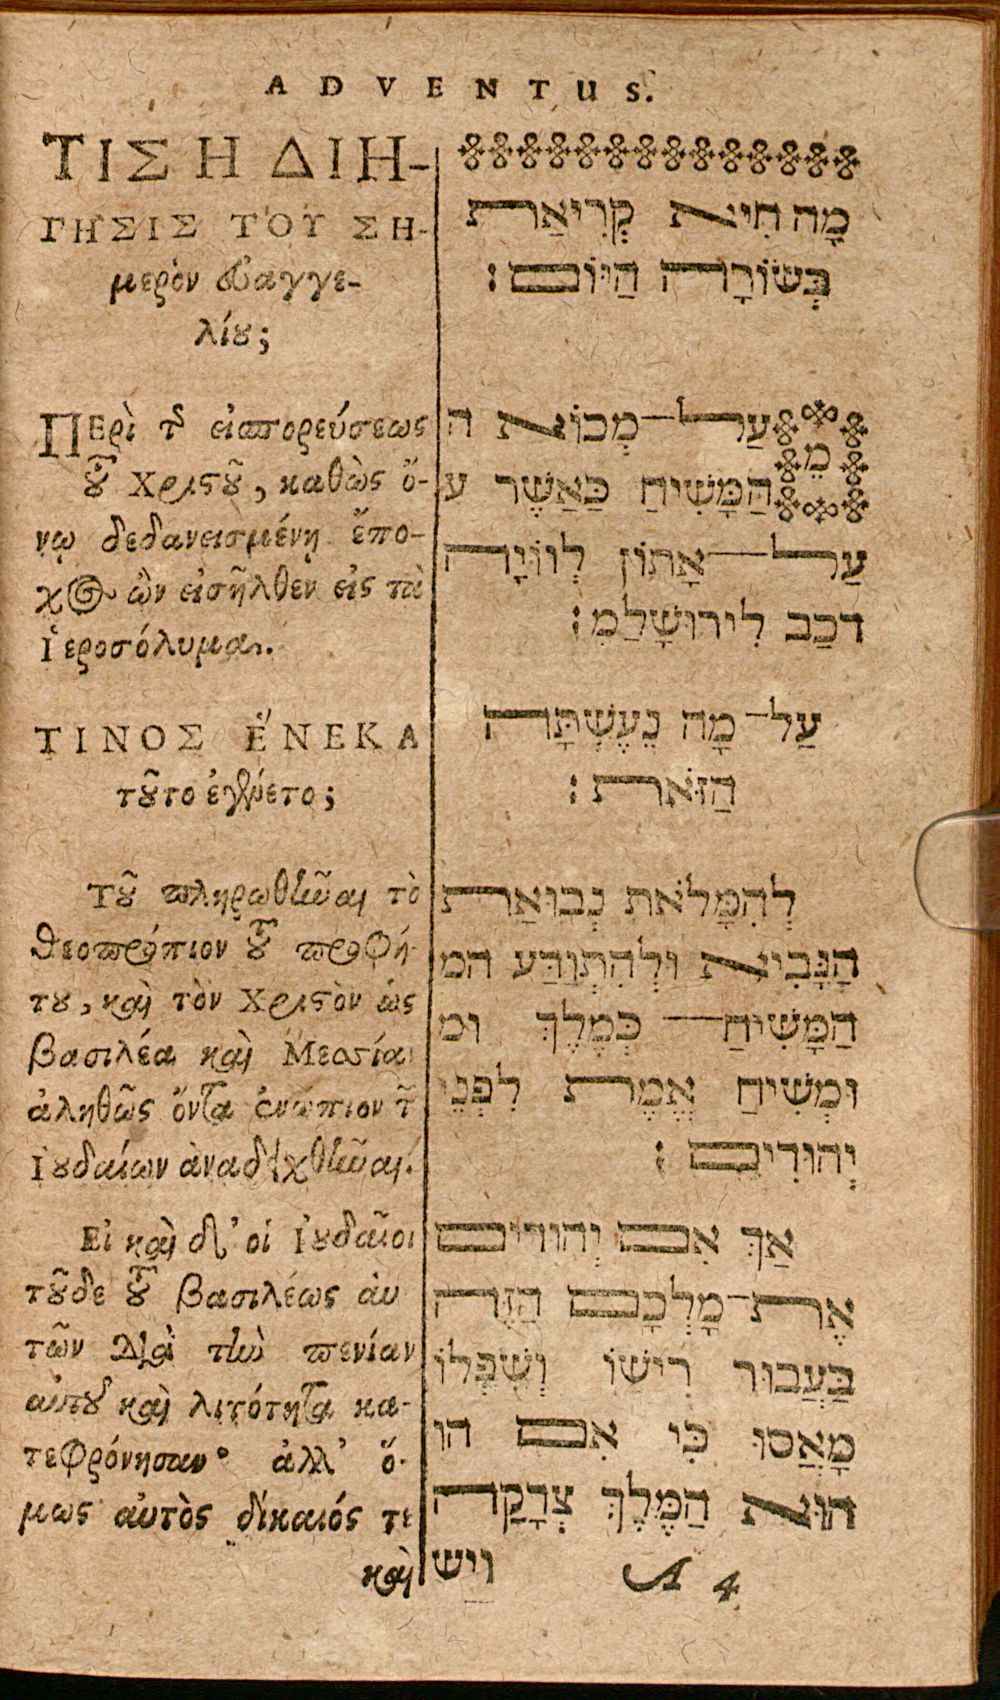 ADVENTUS.
ΤΙΣ Η ΔΙΗ-
ΓΗΣΙΣ ΤΟΥ ΣΗ-
μερὸν εὐαγγε-
λίου;
ΠΕρὶ τῆς εἰσπορεύσεως
τοῦ Χριστοῦ, καθὼς ὄ-
νῳ δεδανεισμένῃ ἔπο-
χος ὢν εἰσῆλθεν εἰς τὰ
Ἱεροσόλυμα.
ΤΙΝΟΣ ἝΝΕΚΑ
τοῦτο ἐγένετο;
Τοῦ πληρωθῆναι τὸ
θεοπρόπιον τοῦ προφή-
του, καὶ τὸν Χριστὸν ὡς
βασιλέα καὶ Μεσσία
ἀληθῶς ὄντα ἐνώπιον τῶν
Ἰουδαίων ἀναδειχθῆναι.
Εἰ καὶ δ' οἱ Ἰουδαῖοι
τοῦδε τοῦ βασιλέως ἀυ
τῶν διὰ τὴν πενίαν
αὐτοῦ καὶ λιτότητα κα-
τεφρόνησαν· ἀλλ' ὅ-
μως αὐτὸς δίκαιός τε
καὶ
מָה הִיא קְרִיאַת
בְּשׂוֹרָה הַיּוֹם:
עַל־מְבוֹא ה
מֵ
הַמָּשִׁיחַ כַּאֲשֶׁר ע
עַל־אָתוֹן לְוּוּיָה
רכַב לִירוּשָׁלַםִ:
עַל־מָה נֶעֶשְׂתָּה
הַזֹּאת:
לְהִמָּלֹאת נְבוּאַת
הַנָּבִיא וּלְהִתְוַדַּע המ
הַמָּשִׁיחַ כְּמֶלֶךְ ומ
וּמְשִׁיחַ אֱמֶת לִפְנֵי
יְהוּדִים:
אַךְ אִם יְהוּדִים
אֶת־מָלְכָּם הַזֶּה
בַּעֲבוּר רִישׁוֹ וְשִׁפְלוֹ
מָאֲסוּ כִּי אִם הו
הוּא הַמֶּלֶךְ צְדָקָה
ויש
A 4